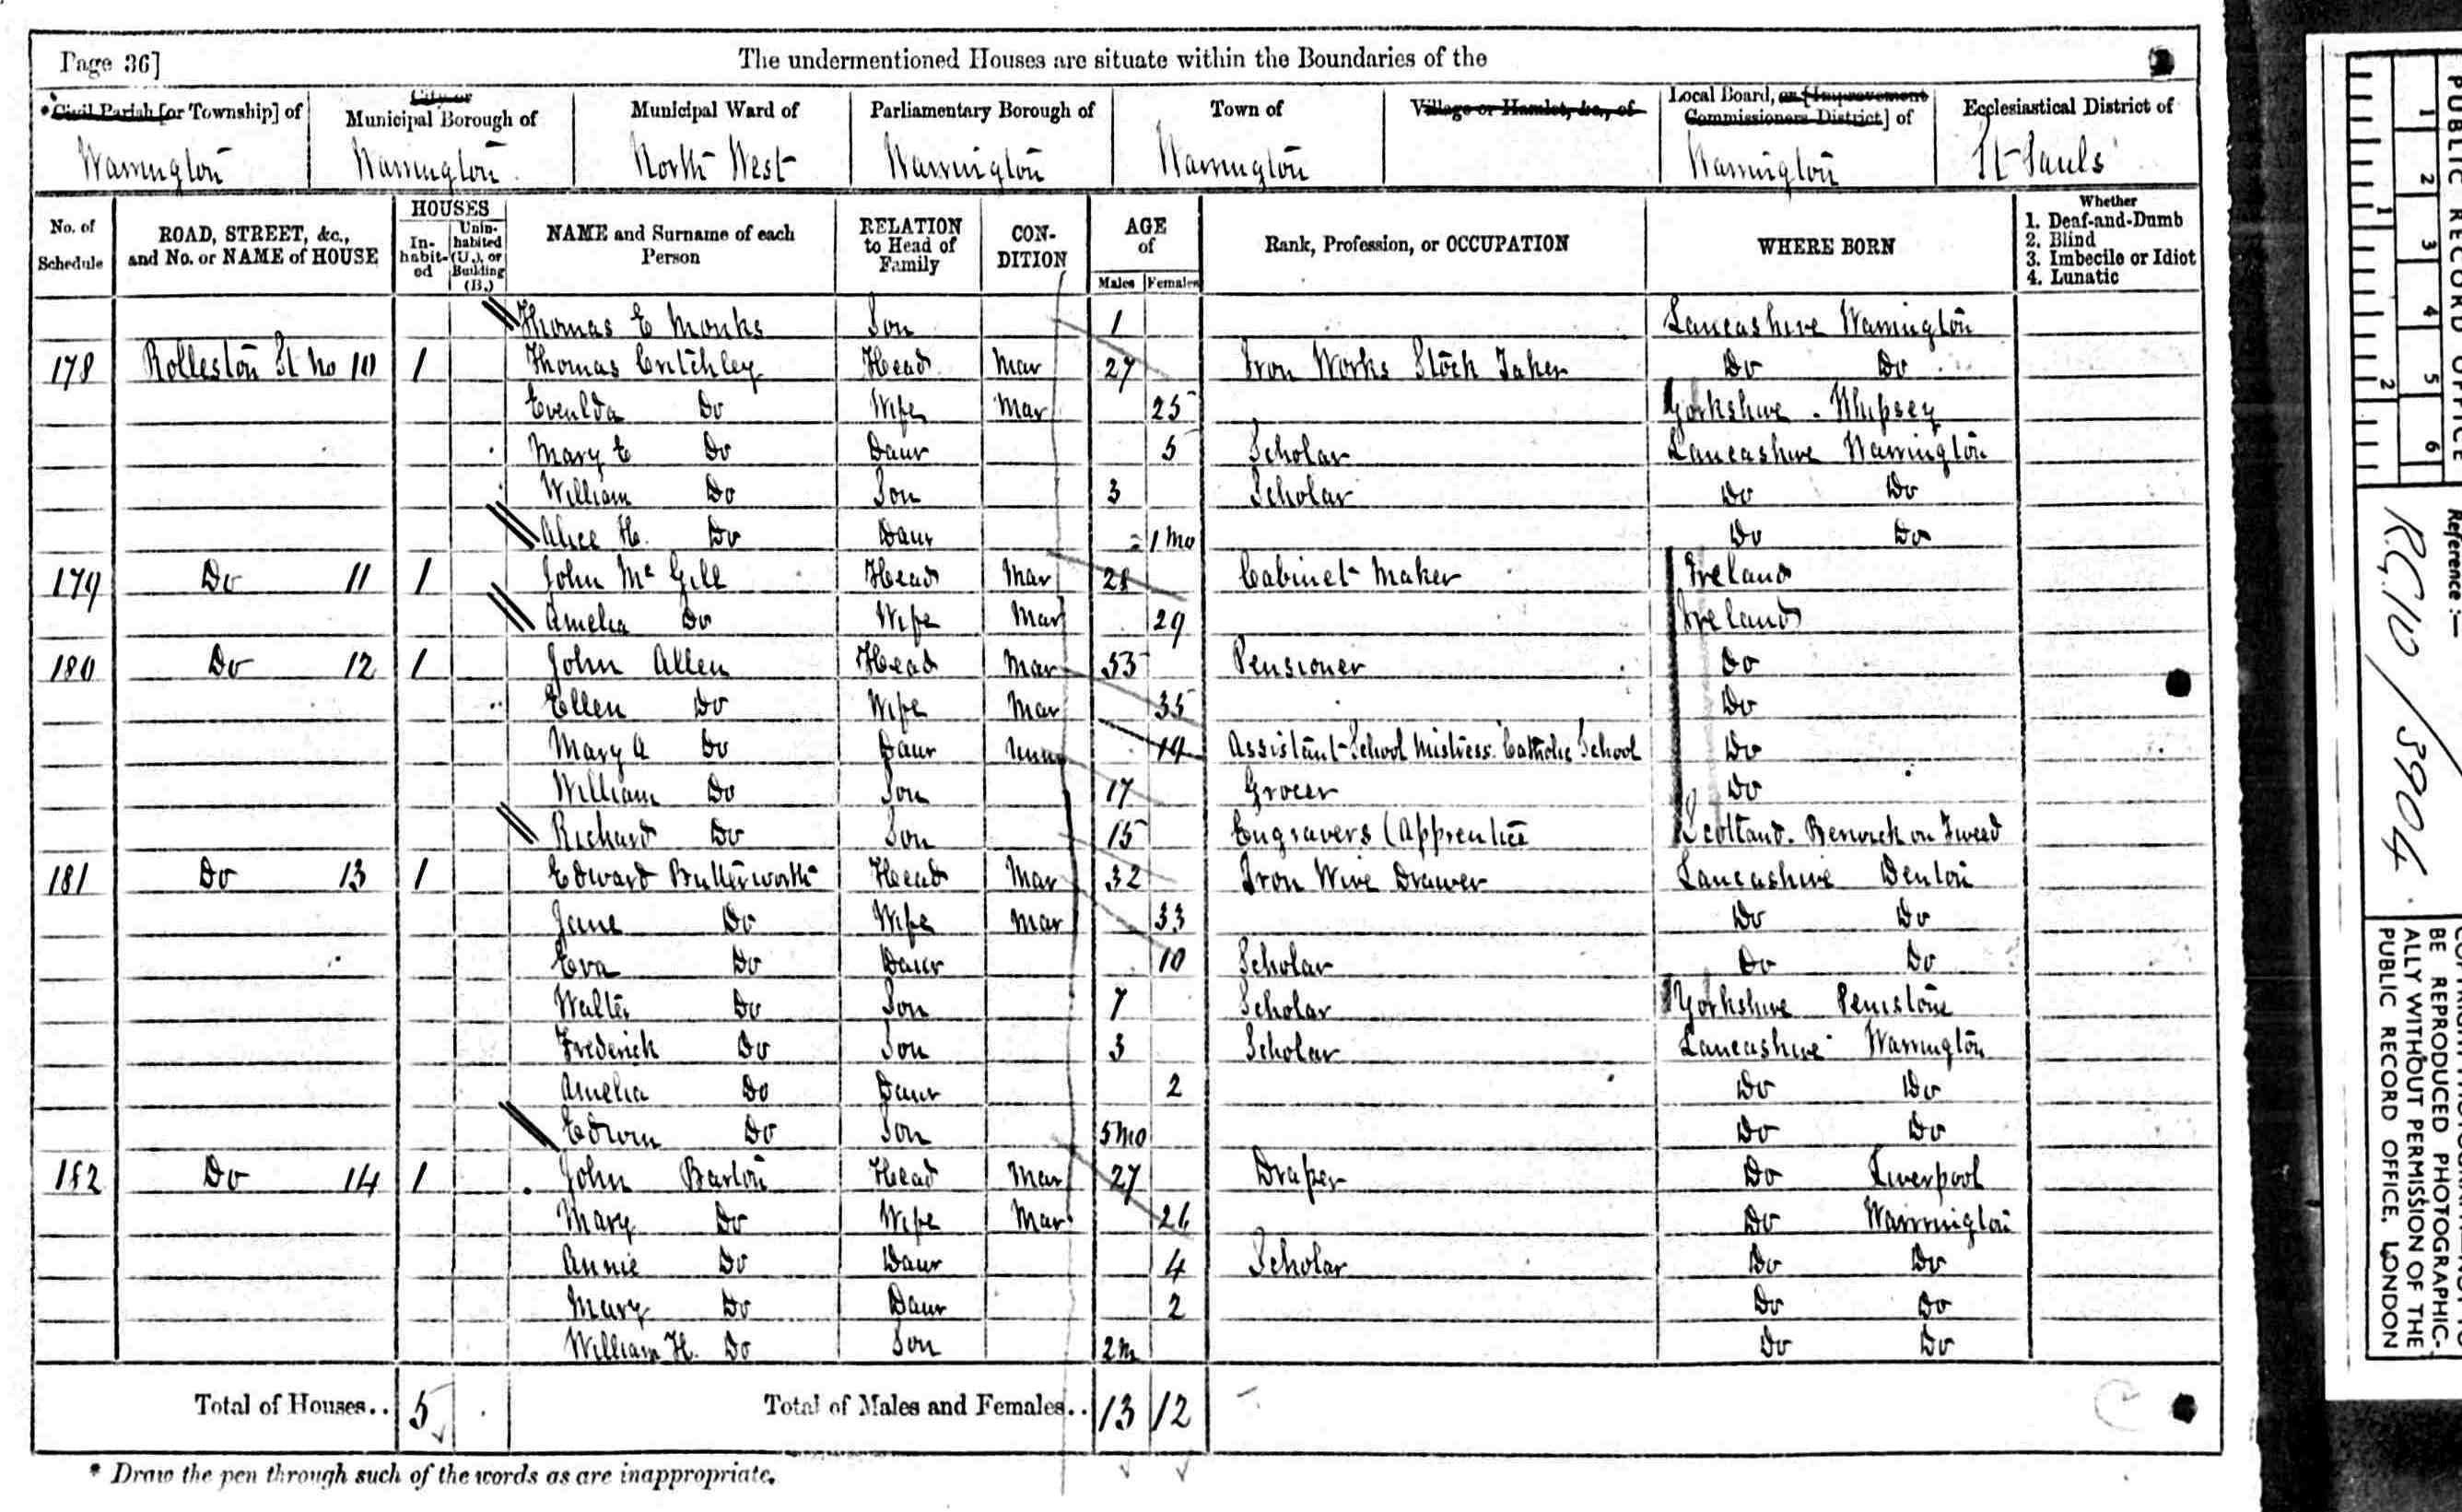 Page 36]
The undermentioned Houses are situate within the Boundaries of the
* Civil Parish [or Township] of
City or Municipal Borough of
Municipal Ward of
Parliamentary Borough of
Town of
Village or Hamlet, &c., of
Local Board, or [Improvement Commissioners District] of
Ecclesiastical District of
Warrington Warrington North West Warrington Warrington Warrington St Pauls
No. of Schedule
ROAD, STREET, &c., and No. or NAME of HOUSE
HOUSES
In-habit-ed
Unin-habited (U.), or Building (B.)
NAME and Surname of each Person
RELATION to Head of Family
CON-DITION
AGE of
Males Females
Rank, Profession, or OCCUPATION
WHERE BORN
Whether
1. Deaf-and-Dumb
2. Blind
3. Imbecile or Idiot
4. Lunatic
Thomas E Monks Son 1 Lancashire Warrington
178 Rolleston St No 10 1 Thomas Critchley Head Mar 27 Iron Works Stock Taker Do Do
Evenlda Do Wife Mar 25 Yorkshire
Mary E Do Daur 5 Scholar Lancashire Warrington
William Do Son 3 Scholar Do Do
Alice H. Do Daur 1 mo Do Do
179 Do 11 1 John Mc Gill Head Mar Cabinet Maker Ireland
Amelia Do Wife Mar 29 Ireland
180 Do 12 1 John Allen Head Mar 53 Pensioner Do
Ellen Do Wife Mar 35 Do
Mary A Do Daur Unm 19 Assistant School Mistress. Catholic School Do
William Do Son 17 Grocer Do
Richard Do Son 15 Engravers (Apprentice Scotland. Berwick on Tweed
181 Do 13 1 Edward Butterworth Head Mar 32 Iron Wire Drawer Lancashire Denton
Jane Do Wife Mar 33 Do Do
Eva Do Daur 10 Scholar Do Do
Walter Do Son 7 Scholar Yorkshire Penistone
Frederick Do Son 3 Scholar Lancashire Warrington
Amelia Do Daur 2 Do Do
Edwin Do Son 5 mo Do Do
182 Do 14 1 John Barton Head Mar 27 Draper Do Liverpool
Mary Do Wife Mar 26 Do Warrington
Annie Do Daur 4 Scholar Do Do
Mary Do Daur 2 Do Do
William H. Do Son 2 m Do Do
Total of Houses.. 5 Total of Males and Females.. 13 12
* Draw the pen through such of the words as are inappropriate.
PUBLIC RECORD OFFICE
1 2 3 4 5 6
1 2
Reference :—
R.G. 10 / 3904
BE REPRODUCED PHOTOGRAPHIC-
ALLY WITHOUT PERMISSION OF THE
PUBLIC RECORD OFFICE, LONDON